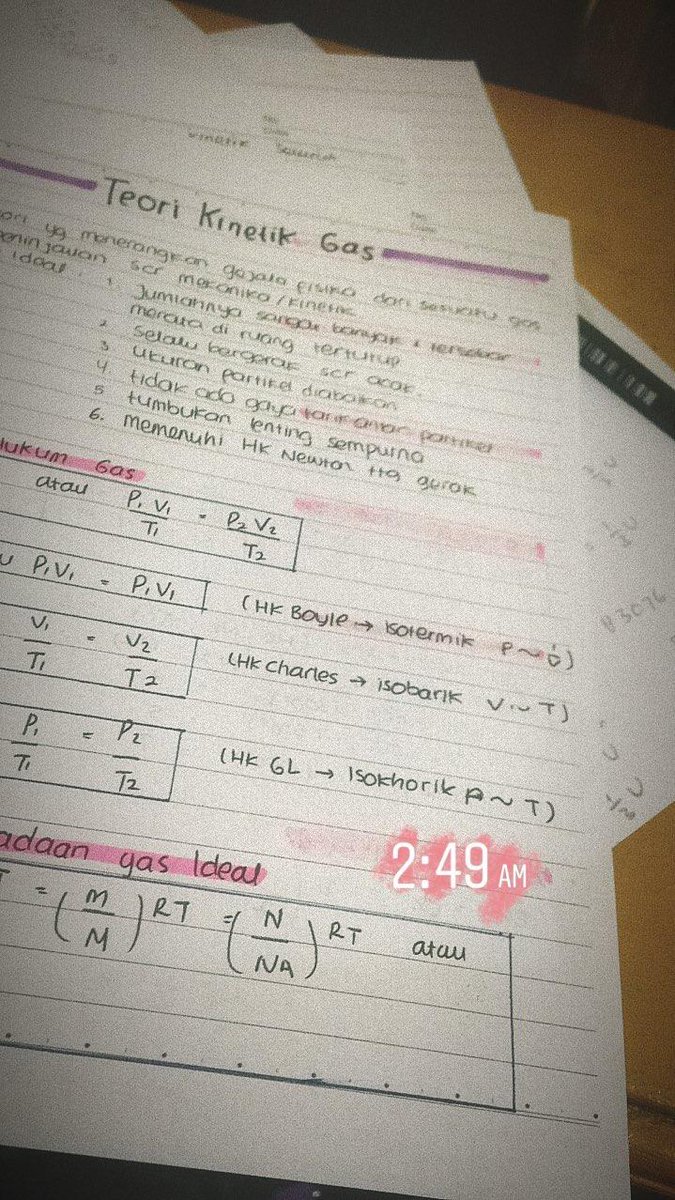 Teori Kinetik Gas
yg menerangkan gejala fisika dari sesuatu gas
scr mekanika/kinetik
ideal : 1. Jumlahnya sangat banyak & tersebar
merata di ruang tertutup
2. selalu bergerak scr acak.
3. ukuran partikel diabaikan
4. tidak ada gaya tarik antar partikel
5. tumbukan lenting sempurna
6. memenuhi HK Newton ttg gerak
Hukum Gas
atau P₁V₁/T₁ = P₂V₂/T₂
P₁V₁ = P₁V₁ (HK Boyle → Isotermik P ~ 1/V)
V₁/T₁ = V₂/T₂ (HK Charles → isobarik V ~ T)
P₁/T₁ = P₂/T₂ (HK GL → Isokhorik P ~ T)
adaan gas Ideal
2:49 AM
= (m/M) RT = (N/NA) RT atau